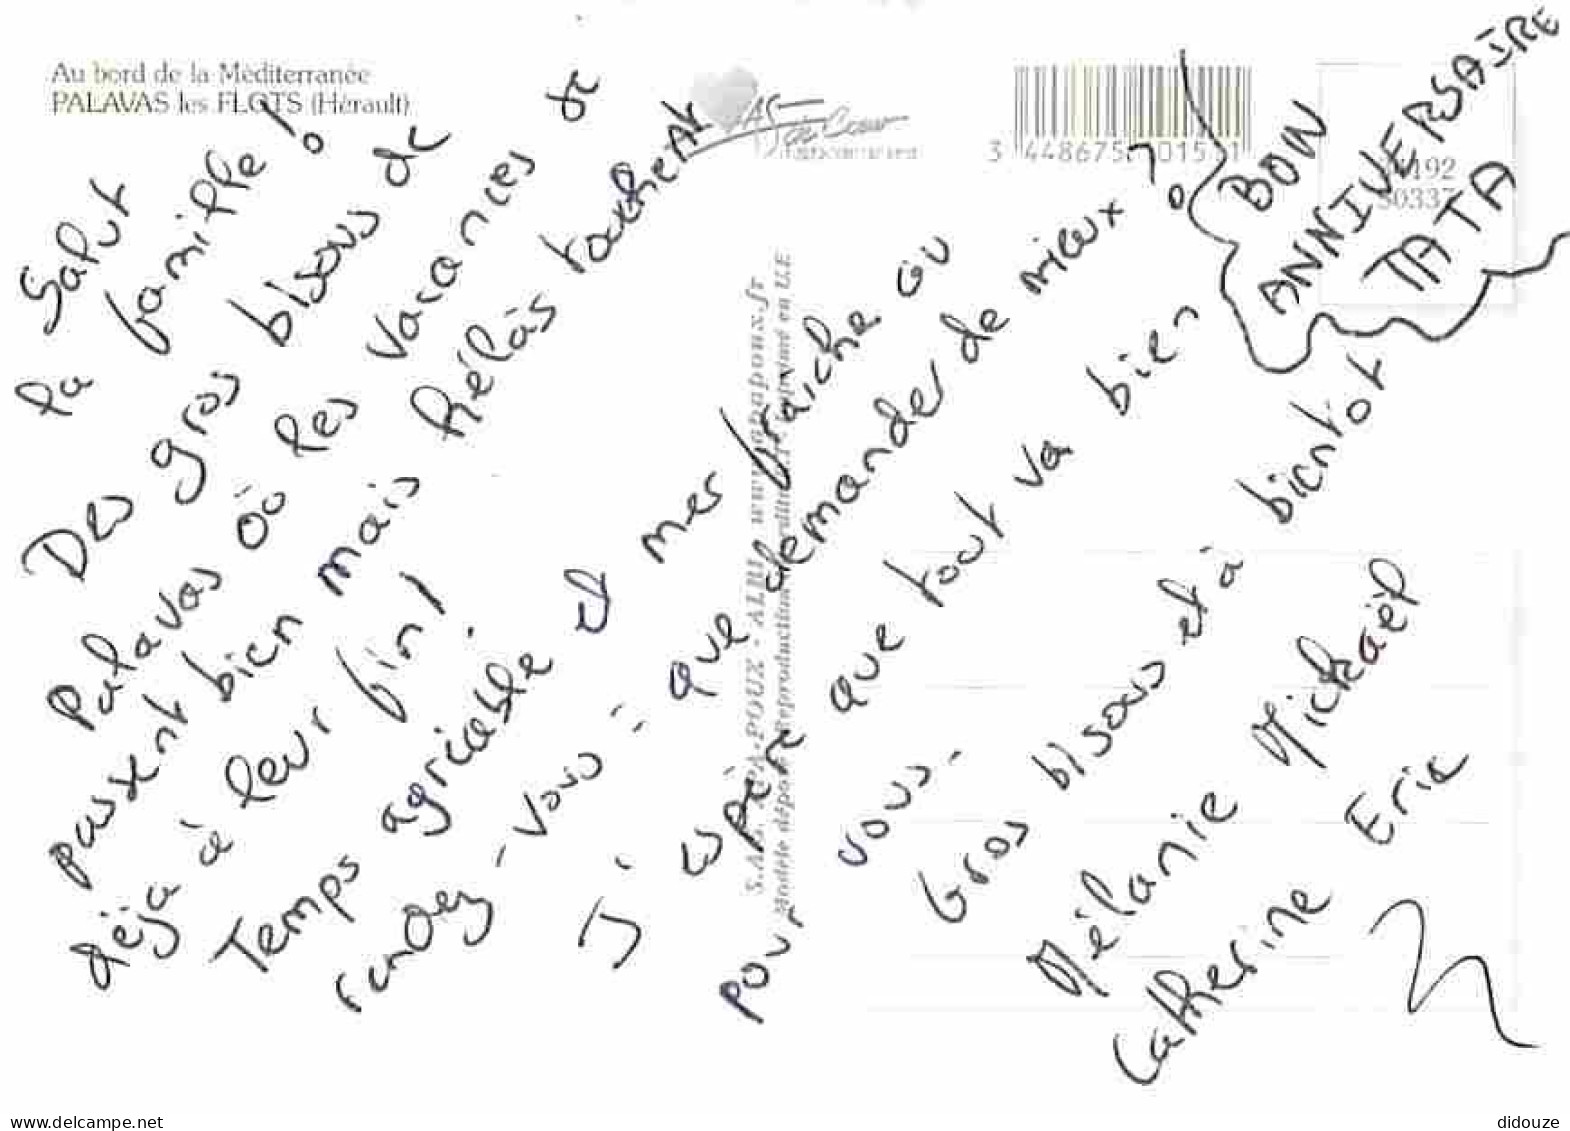 Au bord de la Méditerranée
PALAVAS les FLOTS (Hérault)
3 448675 01531
Salut
la famille !
Des gros bisous de
Palavas où les vacances se
passent bien mais hélas touchent
déjà à leur fin !
Temps agréable et mer fraiche où
rendez-vous = que demander de mieux ?
J'espère que tout va bien
pour vous.
Gros bisous et à bientot
Mélanie Mickaël
Catherine Eric
BON
ANNIVERSAIRE
TATA
S.A.S. APA-POUX - ALBI www.apapoux.fr
Modèle déposé Reproduction interdite Imprimé en U.E
delcampe.net
didouze